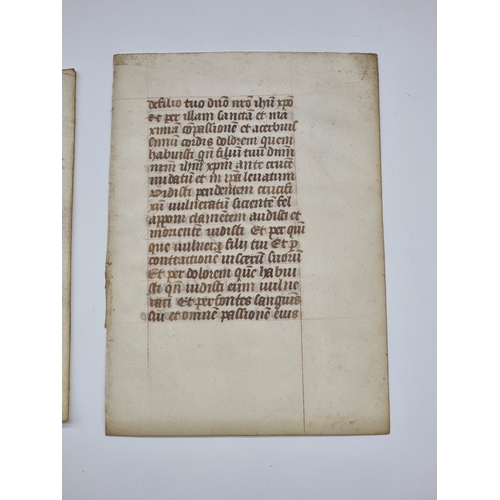 defilio tuo dño nr̃o ihũ xp̃o
Et per illam sanctã et ma
ximã cõpassionẽ et acerbiss
imũ cordis dolorem quem
habuisti qñ filiũ tuũ dñm
nr̃m ihũm xp̃m ante crucẽ
nudatũ et in ip̃a leuatum
vidisti pendentem crucifi
xũ vulneratũ sicientẽ fel
apponi clamentem audisti et
morientẽ vidisti Et per quĩ
que vulnera filij tui Et p̱
contractionẽ viscerũ suorũ
Et per dolorem quẽ habui
sti qñ vidisti eum vulne
rari Et per fontes sanguis
sui et omnẽ passionẽ eius